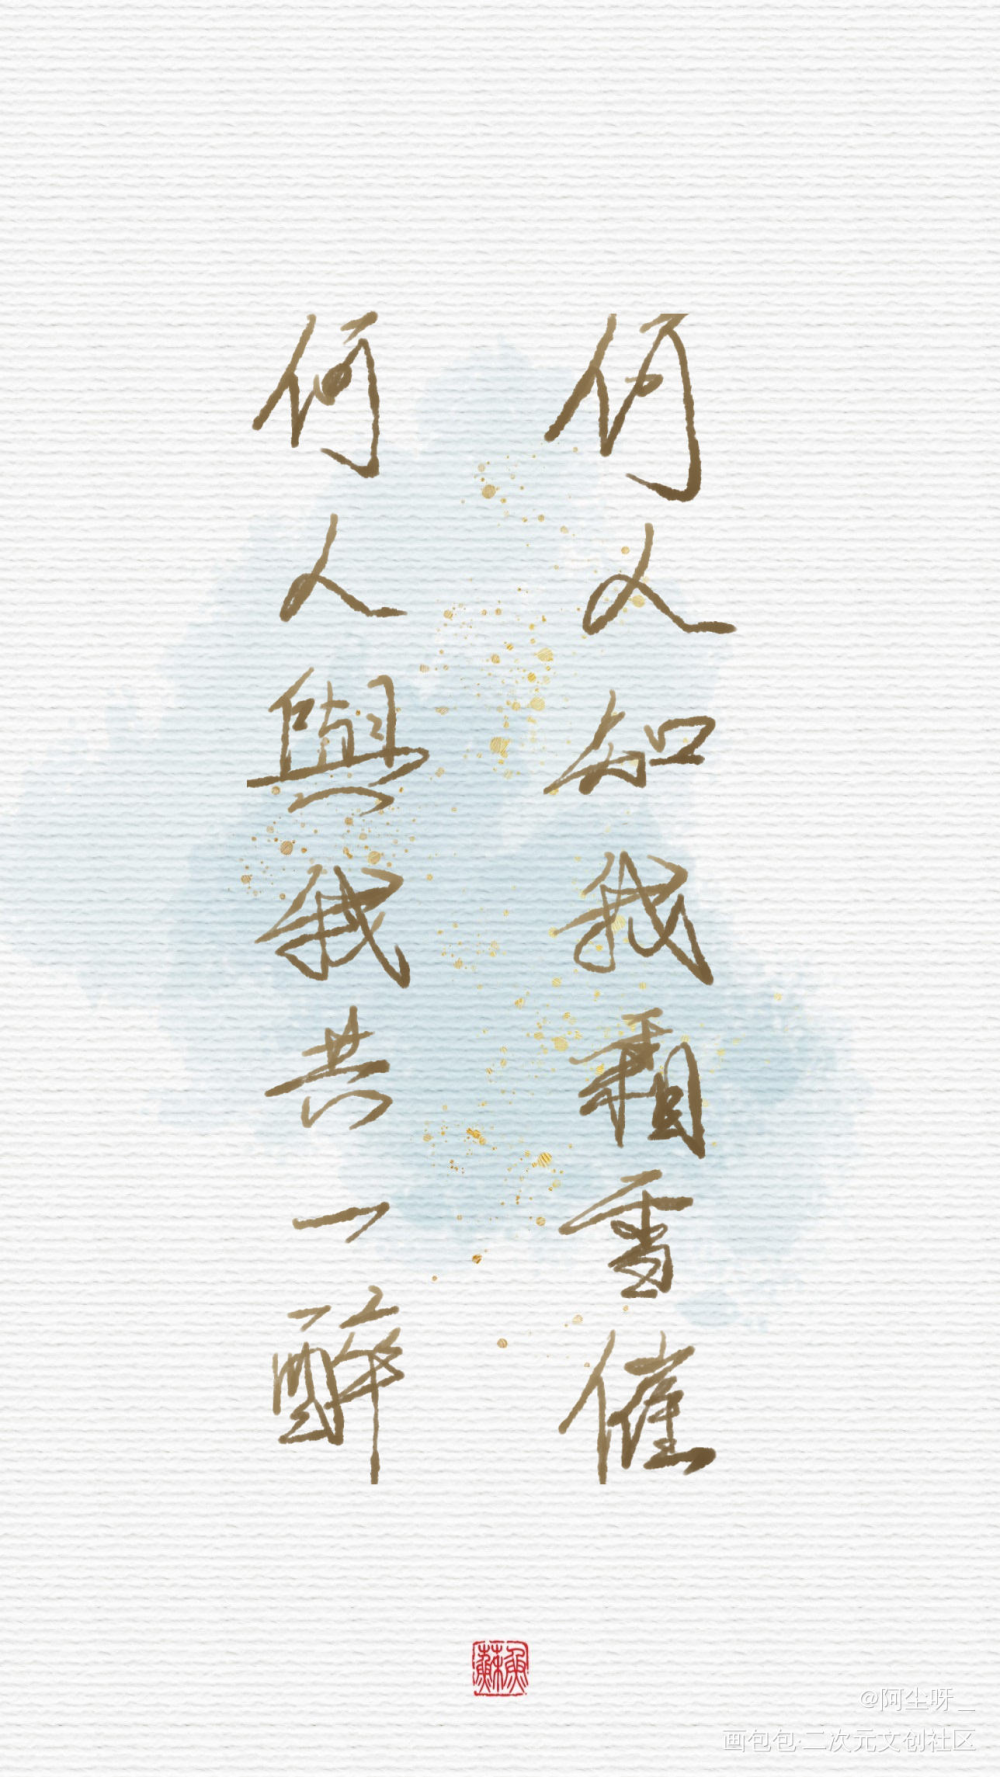 何人知我霜雪催
何人與我共一醉
蘇魚
@阿尘呀_
画包包·二次元文创社区